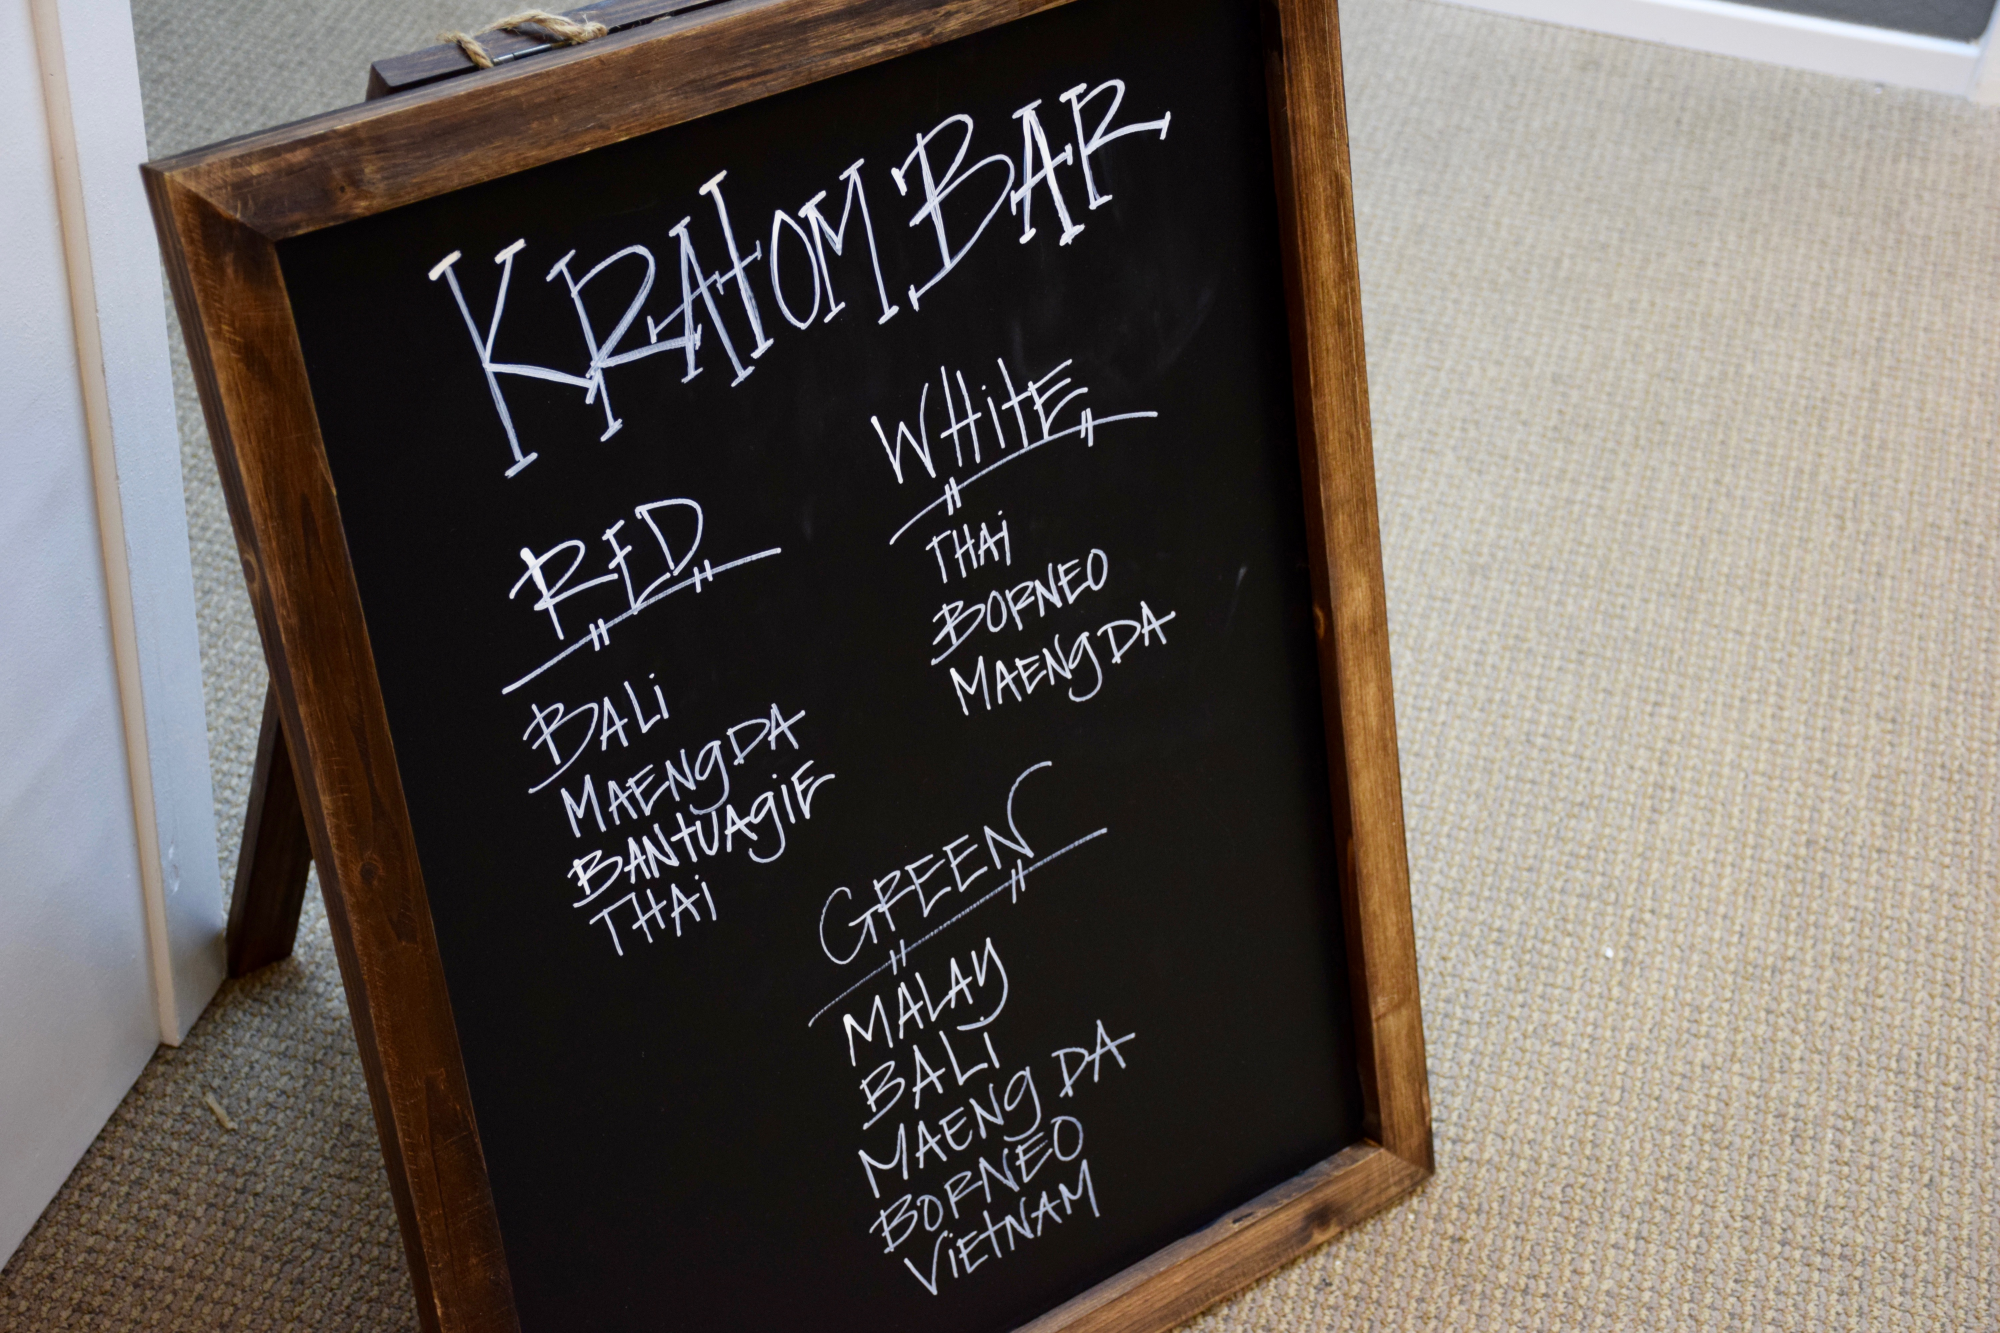 KRATOM BAR
RED
BALi
MAENgDA
BANTUAgiE
THAi
WHiTE
THAi
BORNEO
MAENgDA
GREEN
MALAY
BALi
MAENg DA
BORNEO
ViETNAM